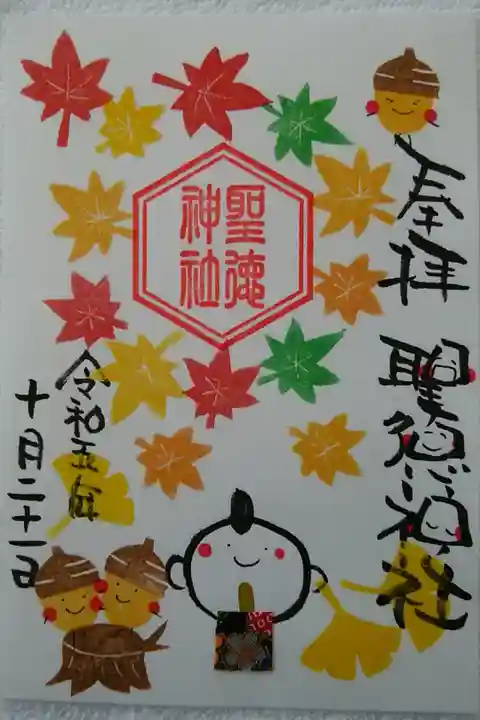 奉拝
聖徳神社
聖徳
神社
令和五年
十月二十一日